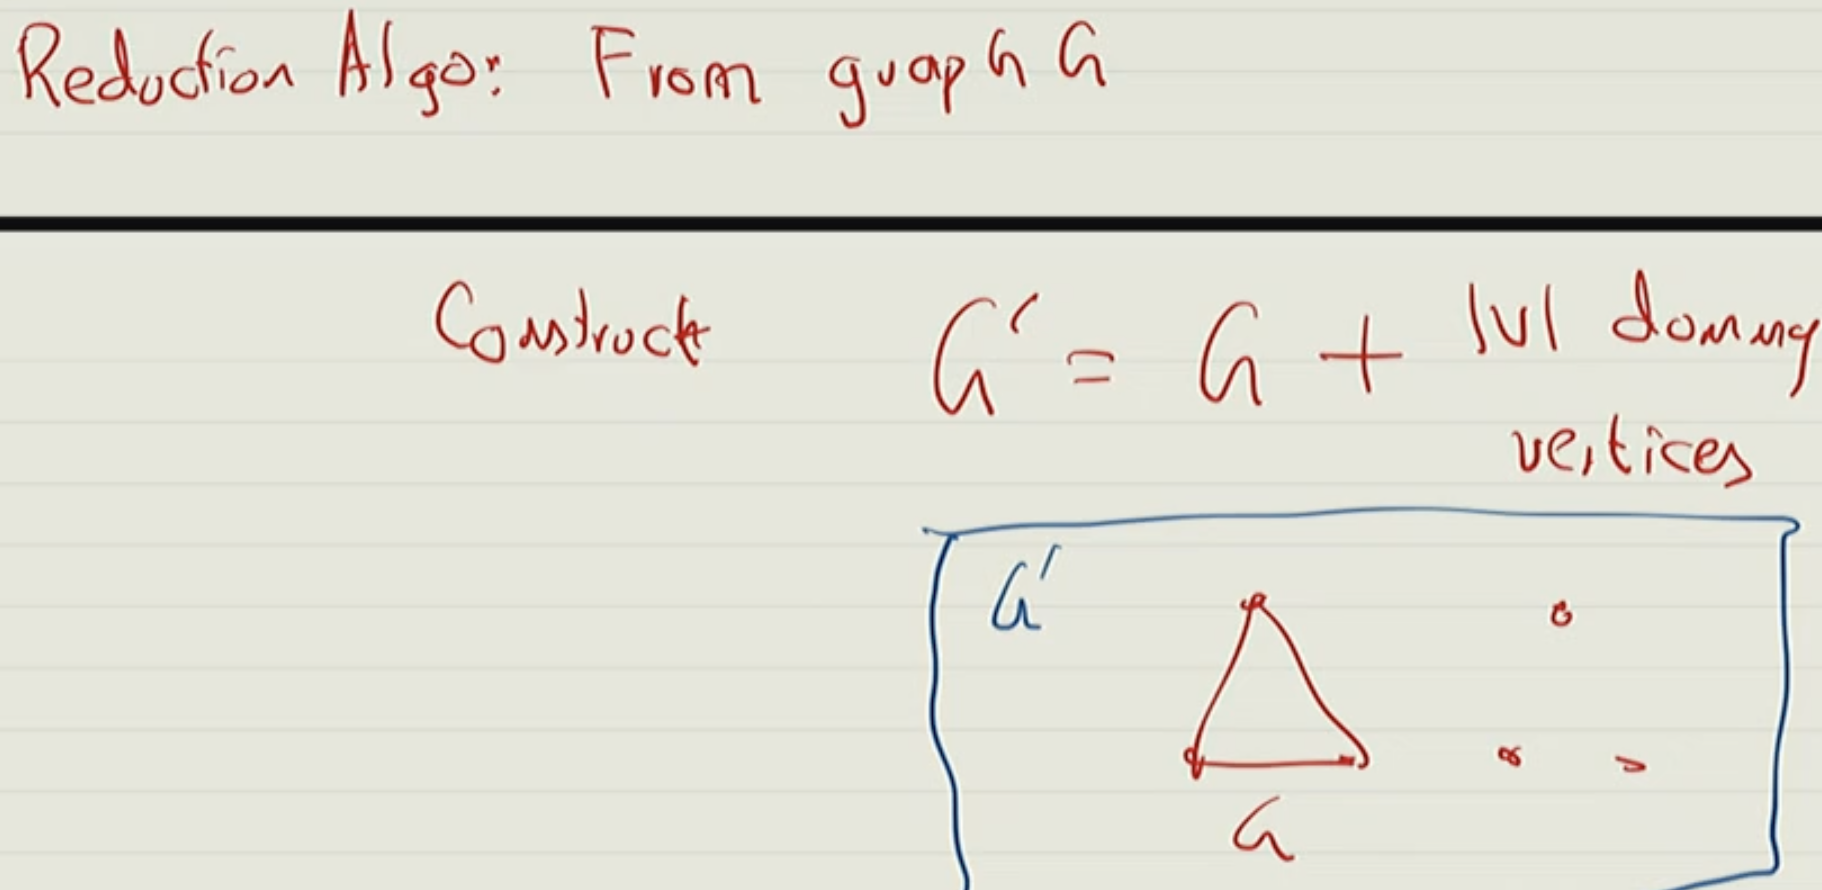 Reduction Algo: From graph G
Construct G' = G + |V| dommy
vertices
G'
G